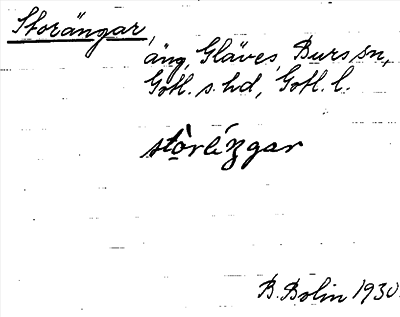 Storängar,
äng, Gläves, Burs sn,
Gotl. s. hd, Gotl. l.
B. Bolin 1930.